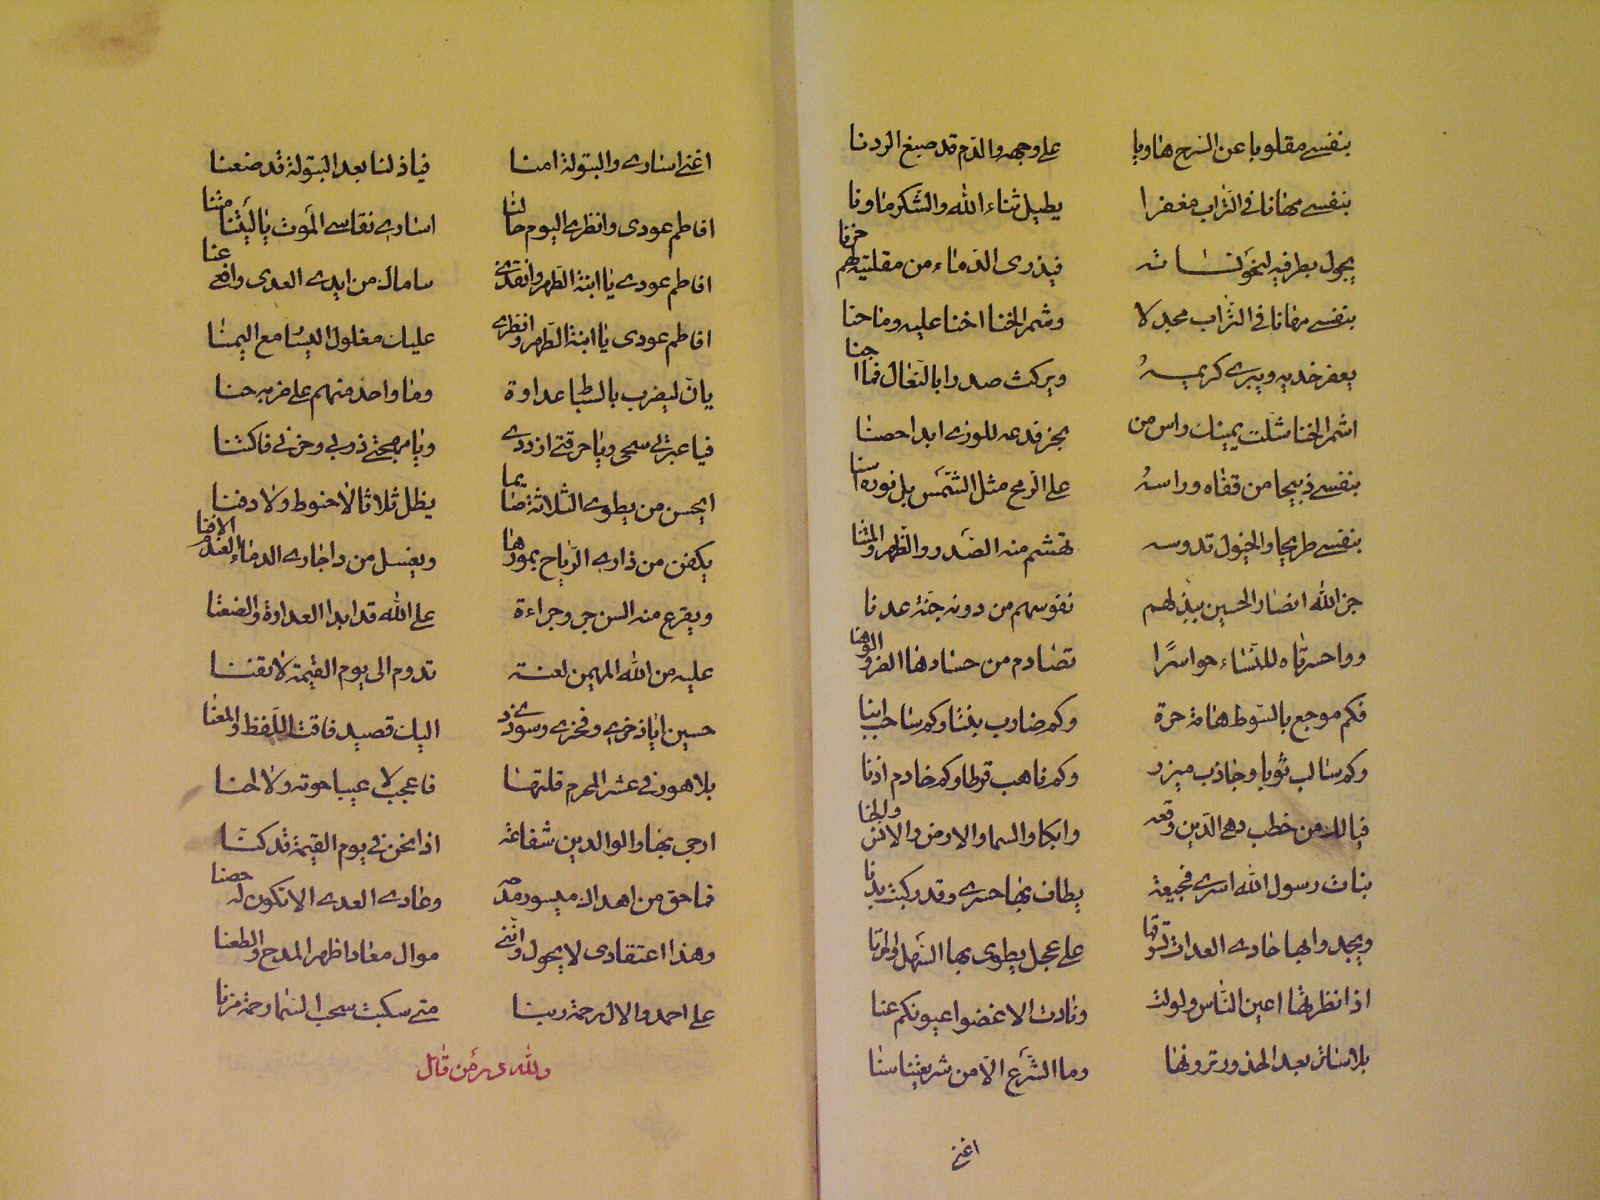 بنفسي مقلوبا عن السرج هاويا على وجهه والدم قد صبغ الردنا
بنفسي مهانا في التراب معفرا يطيل ثناء الله والشكر ما ونا
يجول بطرفيه لنحو فيذرى الدماء من مقلتيه لهم حزنا
بنفسي مهانا في التراب مجدلا وشمر الخنا اخنا عليه وما حنا
يعفر خديه ويبرى كريمه ويركب صدرا بالنعال فما اجنا
اشمر الخنا شلت يمينك راس من بجز قدعه للوزى ابدا حصنا
بنفسي ذبيحا من قفاه وراسه على الرمح مثل الشمس بل نوره اسنا
بنفسي طريحا والخيول تدوسه تهشم منه الصدر والظهر والمتنا
جزى الله انصار الحسين ببذلهم نفوسهم من دونه جنة عدنا
وواحسرتاه للنساء حواسرا تصادم من حسادها الضر والوهنا
فكم موجع بالسوط هامة حرة وكم ضارب بنتا وكم ساحب ابنا
وكم سالب ثوبا وجاذب ميزر وكم ناهب قرطا وكم خادم اذنا
فيالك من خطب دهى الدين وقعه وابكا والسما والارض والانس والجنا
بنات رسول الله اسرى فجيعة يطاف بها حسرى وقد ركبت بدنا
ويجدوا بها حادى العدات تسوقها على عجل يطوى بها السهل والحزنا
اذا نظرتها اعين الناس ولولت ونادت الا غضوا عيونكم عنا
بلا ساتر بعد الخدور ترونها وما الشرع الا من شريعتنا سنا
اغثنى
اغثنى اسارى والبتولة امنا فيا ذلنا بعد البتولة قد ضعنا
افاطم عودى وانظرى اليوم حالنا اسارى نقاسى الموت ياليتنا متنا
افاطم عودى يا ابنة الطهر وانقذى سامالك من ايدى العدى وادفعى عنا
افاطم عودى يا ابنة الطهر وانظرى عليك مغلول اليسا مع اليمنا
يان ليضرب بالسطبا عداوة وما واحد منهم على ضربه حنا
فيا عبرتى سحى ويا حرقتى ازددى ويا مهجتى ذوبى وحزنى فاكثنا
ايحسن من يطوى الثلاثة صائما يظل ثلاثا لا حنوط ولا دفنا
يكفن من ذارى الرياح بمورها ويغسل من جارى الدماء
ويقرع منه السن جر وجراءة على الله قد ابدا العداوة والضغنا
عليه من الله المهيمن لعنة تدوم الى يوم القيمة لا تفنا
حسين ايا ذخرى وفخرى وسوددى اليك قصيد فاقت اللفظ والمعنا
بلاهور في عشر المحرم قلتها فاعجب لا عيبا حوته ولا لحنا
ارجى بها والوالدين شفاعة اذا نحن في يوم القيمة قد كنا
فما حق من اهداك ميسور مدحه وعادى العدى الا تكون له حصنا
وهذا اعتقادى لا يحول واننى موال معادا ظهر المدح والطعنا
على احمد والال رحمة ربنا متى سكبت سحب السما رحمة مزنا
ولله در من قال